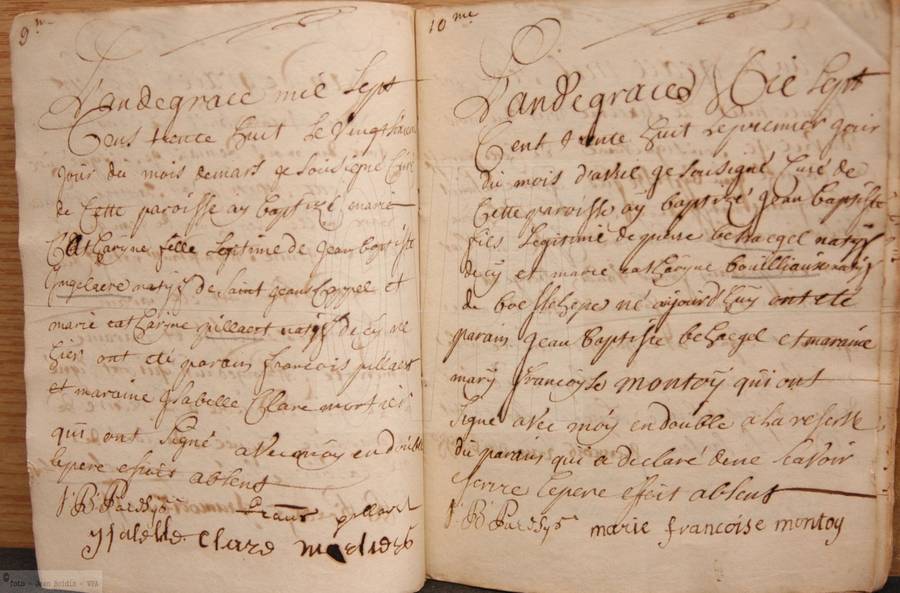 9me
L'an de grace mil sept
Cens trente huit le vingt
jour du mois de mars je soussigné Curé
de Cette paroisse ay baptizé marie
Catharyne fille Legitime de jean baptiste
Engelaere natif de Saint jeans Cappel et
marie catharyne pillaert natif d'icy né
hier ont eté parain francois pillaert
et maraine ysabelle Clare mortier
qui ont signé avec moy en double
le pere estoit absent
J: B:
francois pillaert
ysabelle clare
10me
L'an de grace Mil sept
Cent trente huit le premier jour
du mois d'avril je soussigné Curé de
Cette paroisse ay baptizé jean baptiste
fils Legitime de piere behaegel natif
d'icy et marie catharyne bouilliaux natif
de boeschepe né aujourd'huy ont eté
parain jean baptiste behaegel et maraine
mary francoyse montoÿ qui ont
signé avec moy en double a la reserve
du parain qui a declaré de ne scavoir
escrire le pere estoit absent
J: B:
marie francoise montoy
foto - Jean Boidin - VVA